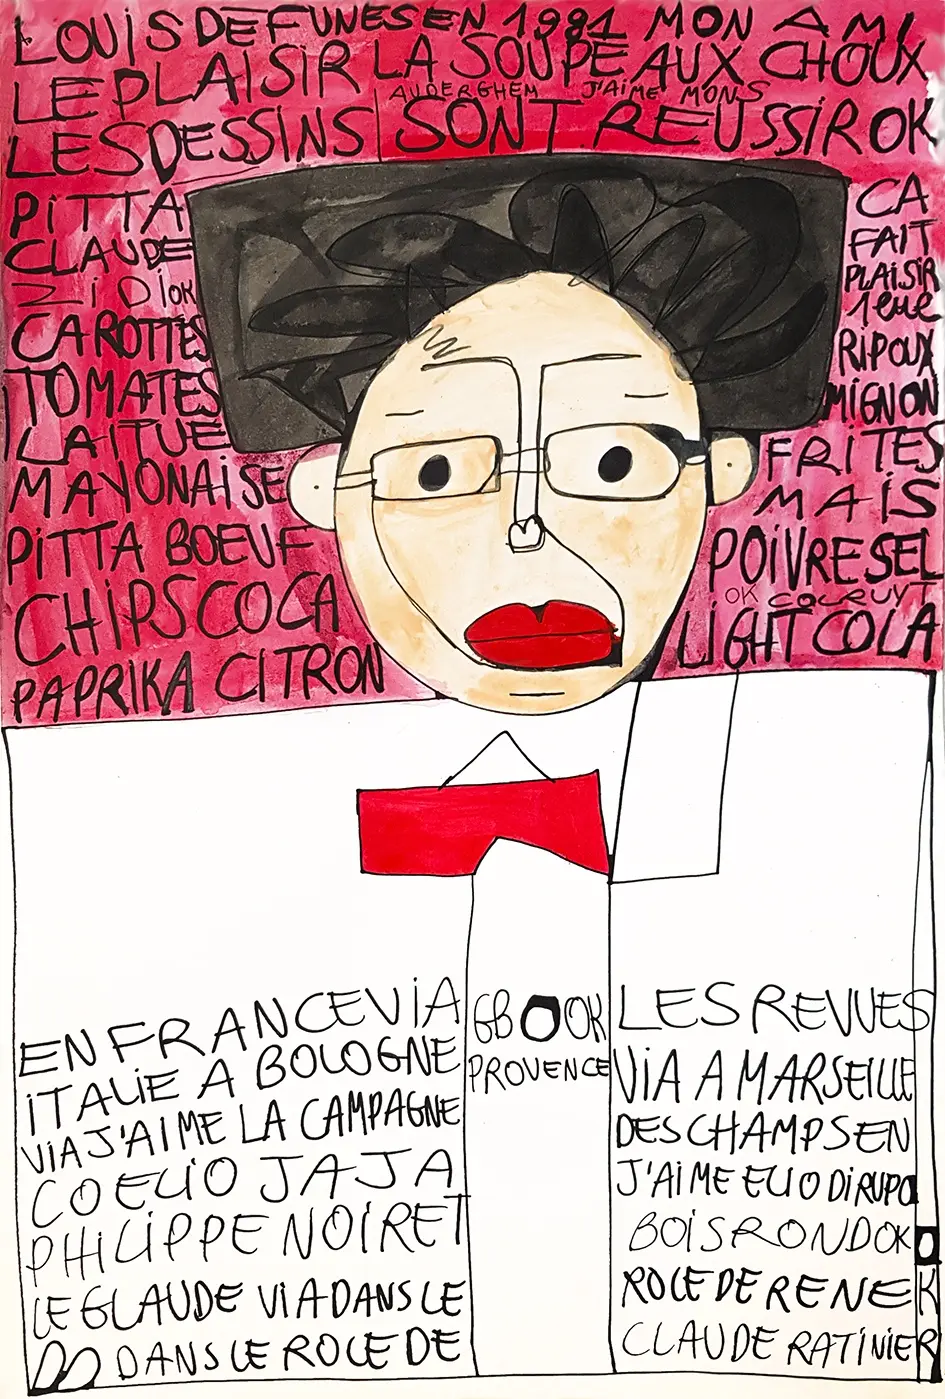 LOUIS DE FUNES EN 1981 MON AMI
LE PLAISIR LA SOUPE AUX CHOUX
AUDERGHEM J'AIME MONS
LES DESSINS SONT REUSSIR OK
PITTA
CLAUDE
ZIDI OK
CAROTTES
TOMATES
LAITUE
MAYONAISE
PITTA BOEUF
CHIPS COCA
PAPRIKA CITRON
CA
FAIT
PLAISIR
1ème
RIPOUX
MIGNON
FRITES
MAIS
POIVRE SEL
OK COLRUYT
LIGHT COLA
EN FRANCE VIA
ITALIE A BOLOGNE
VIA J'AIME LA CAMPAGNE
CO ELIO JAJA
PHILIPPE NOIRET
LE GLAUDE VIA DANS LE
DANS LE ROLE DE
GB OOK
PROVENCE
LES REVUES
VIA A MARSEILLE
DESCHAMPS EN
J'AIME ELIO DI RUPO
BOISROND OK
ROLE DE RENE
CLAUDE RATINIER
O
K
R